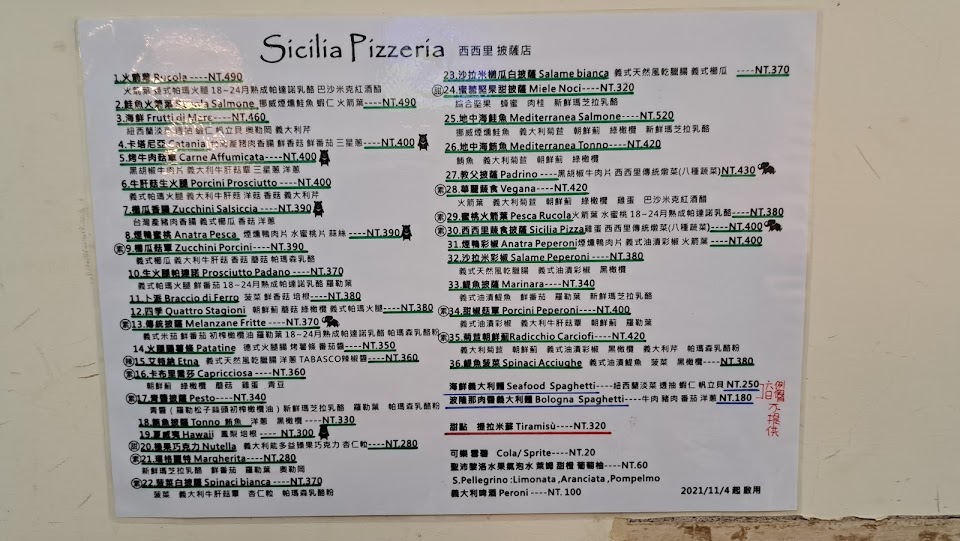 Sicilia Pizzeria 西西里 披薩店
1.火箭葉 Rucola ----NT.490
火箭葉 義式帕瑪火腿 18~24月熟成帕達諾乳酪 巴沙米克紅酒醋
2.鮭魚火箭葉 Rucola Salmone 挪威煙燻鮭魚 蝦仁 火箭葉----NT.490
3.海鮮 Frutti di Mare----NT.460
紐西蘭淡菜 透抽 蝦仁 帆立貝 奧勒岡 義大利芹
4.卡塔尼亞 Catania 台灣產豬肉香腸 鮮香菇 鮮番茄 三星蔥----NT.400
5.烤牛肉菇蕈 Carne Affumicata----NT.400
黑胡椒牛肉片 義大利牛肝菇蕈 三星蔥 洋蔥
6.牛肝菇生火腿 Porcini Prosciutto ----NT.400
義式帕瑪火腿 義大利牛肝菇 洋菇 香菇 義大利芹
7.櫛瓜香腸 Zucchini Salsiccia ----NT.390
台灣產豬肉香腸 義式櫛瓜 香菇 洋蔥
8.煙鴨蜜桃 Anatra Pesca 煙燻鴨肉片 水蜜桃片 蒜絲 ----NT.390
素 9.櫛瓜菇蕈 Zucchini Porcini----NT.390
義式櫛瓜 義大利牛肝菇 香菇 蘑菇 帕瑪森乳酪
10.生火腿帕達諾 Prosciutto Padano ----NT.370
義式帕瑪火腿 鮮番茄 18~24月熟成帕達諾乳酪 羅勒葉
11.卜派 Braccio di Ferro 菠菜 鮮香菇 培根----NT.380
12.四季 Quattro Stagioni 朝鮮薊 蘑菇 綠橄欖 義式帕瑪火腿----NT.380
素 13.傳統披薩 Melanzane Fritte ----NT.370
義式米茄 鮮番茄 初榨橄欖油 羅勒葉 18~24月熟成帕達諾乳酪 帕瑪森乳酪粉
14.火腿腸薯條 Patatine 德式火腿腸 烤薯條 番茄醬----NT.350
辣 15.艾特納 Etna 義式天然風乾臘腸 洋蔥 TABASCO辣椒醬----NT.360
素 16.卡布里喬莎 Capricciosa ----NT.360
朝鮮薊 綠橄欖 蘑菇 雞蛋 青豆
素 17.青醬披薩 Pesto----NT.340
青醬（羅勒松子蒜頭初榨橄欖油）新鮮瑪芝拉乳酪 羅勒葉 帕瑪森乳酪粉
18.鮪魚披薩 Tonno 鮪魚 洋蔥 黑橄欖----NT.330
19.夏威夷 Hawaii 鳳梨 培根---- NT.300
甜 20.榛果巧克力 Nutella 義大利能多益榛果巧克力 杏仁粒----NT.280
素 21.瑪格麗特 Margherita----NT.280
新鮮瑪芝拉乳酪 鮮番茄 羅勒葉 奧勒岡
素 22.菠菜白披薩 Spinaci bianca ----NT.370
菠菜 義大利牛肝菇蕈 杏仁粒 帕瑪森乳酪粉
23.沙拉米櫛瓜白披薩 Salame bianca 義式天然風乾臘腸 義式櫛瓜 ----NT.370
甜 24.蜜蜂堅果甜披薩 Miele Noci----NT.320
綜合堅果 蜂蜜 肉桂 新鮮瑪芝拉乳酪
25.地中海鮭魚 Mediterranea Salmone----NT.520
挪威煙燻鮭魚 義大利菊苣 朝鮮薊 綠橄欖 新鮮瑪芝拉乳酪
26.地中海鮪魚 Mediterranea Tonno----NT.420
鮪魚 義大利菊苣 朝鮮薊 綠橄欖
27.教父披薩 Padrino ----黑胡椒牛肉片 西西里傳統燉菜(八種蔬菜)NT.430
素 28.華麗蔬食 Vegana----NT.420
火箭葉 義大利菊苣 朝鮮薊 綠橄欖 雞蛋 巴沙米克紅酒醋
素 29.蜜桃火箭葉 Pesca Rucola火箭葉 水蜜桃 18~24月熟成帕達諾乳酪----NT.380
素 30.西西里蔬食披薩 Sicilia Pizza雞蛋 西西里傳統燉菜(八種蔬菜)----NT.400
31.煙鴨彩椒 Anatra Peperoni煙燻鴨肉片 義式油漬彩椒 火箭葉 ----NT.400
32.沙拉米彩椒 Salame Peperoni ----NT.380
義式天然風乾臘腸 義式油漬彩椒 黑橄欖
33.鯷魚披薩 Marinara----NT.340
義式油漬鯷魚 鮮番茄 羅勒葉 新鮮瑪芝拉乳酪
素 34.甜椒菇蕈 Porcini Peperoni ----NT.400
義式油漬彩椒 義大利牛肝菇蕈 朝鮮薊 羅勒葉
素 35.菊苣朝鮮薊Radicchio Carciofi----NT.420
義大利菊苣 朝鮮薊 義式油漬彩椒 黑橄欖 義大利芹 帕瑪森乳酪粉
36.鯷魚菠菜 Spinaci Acciughe 義式油漬鯷魚 菠菜 黑橄欖----NT.380
海鮮義大利麵 Seafood Spaghetti----紐西蘭淡菜 透抽 蝦仁 帆立貝 NT.250
波隆那肉醬義大利麵 Bologna Spaghetti----牛肉 豬肉 番茄 洋蔥 NT.180
六日 例假日 不提供
甜點 提拉米蘇 Tiramisù----NT.320
可樂 雪碧 Cola/ Sprite----NT.20
聖沛黎洛水果氣泡水 萊姆 甜橙 葡萄柚----NT.60
S.Pellegrino :Limonata ,Aranciata ,Pompelmo
義大利啤酒 Peroni ----NT. 100
2021/11/4 起 啟用